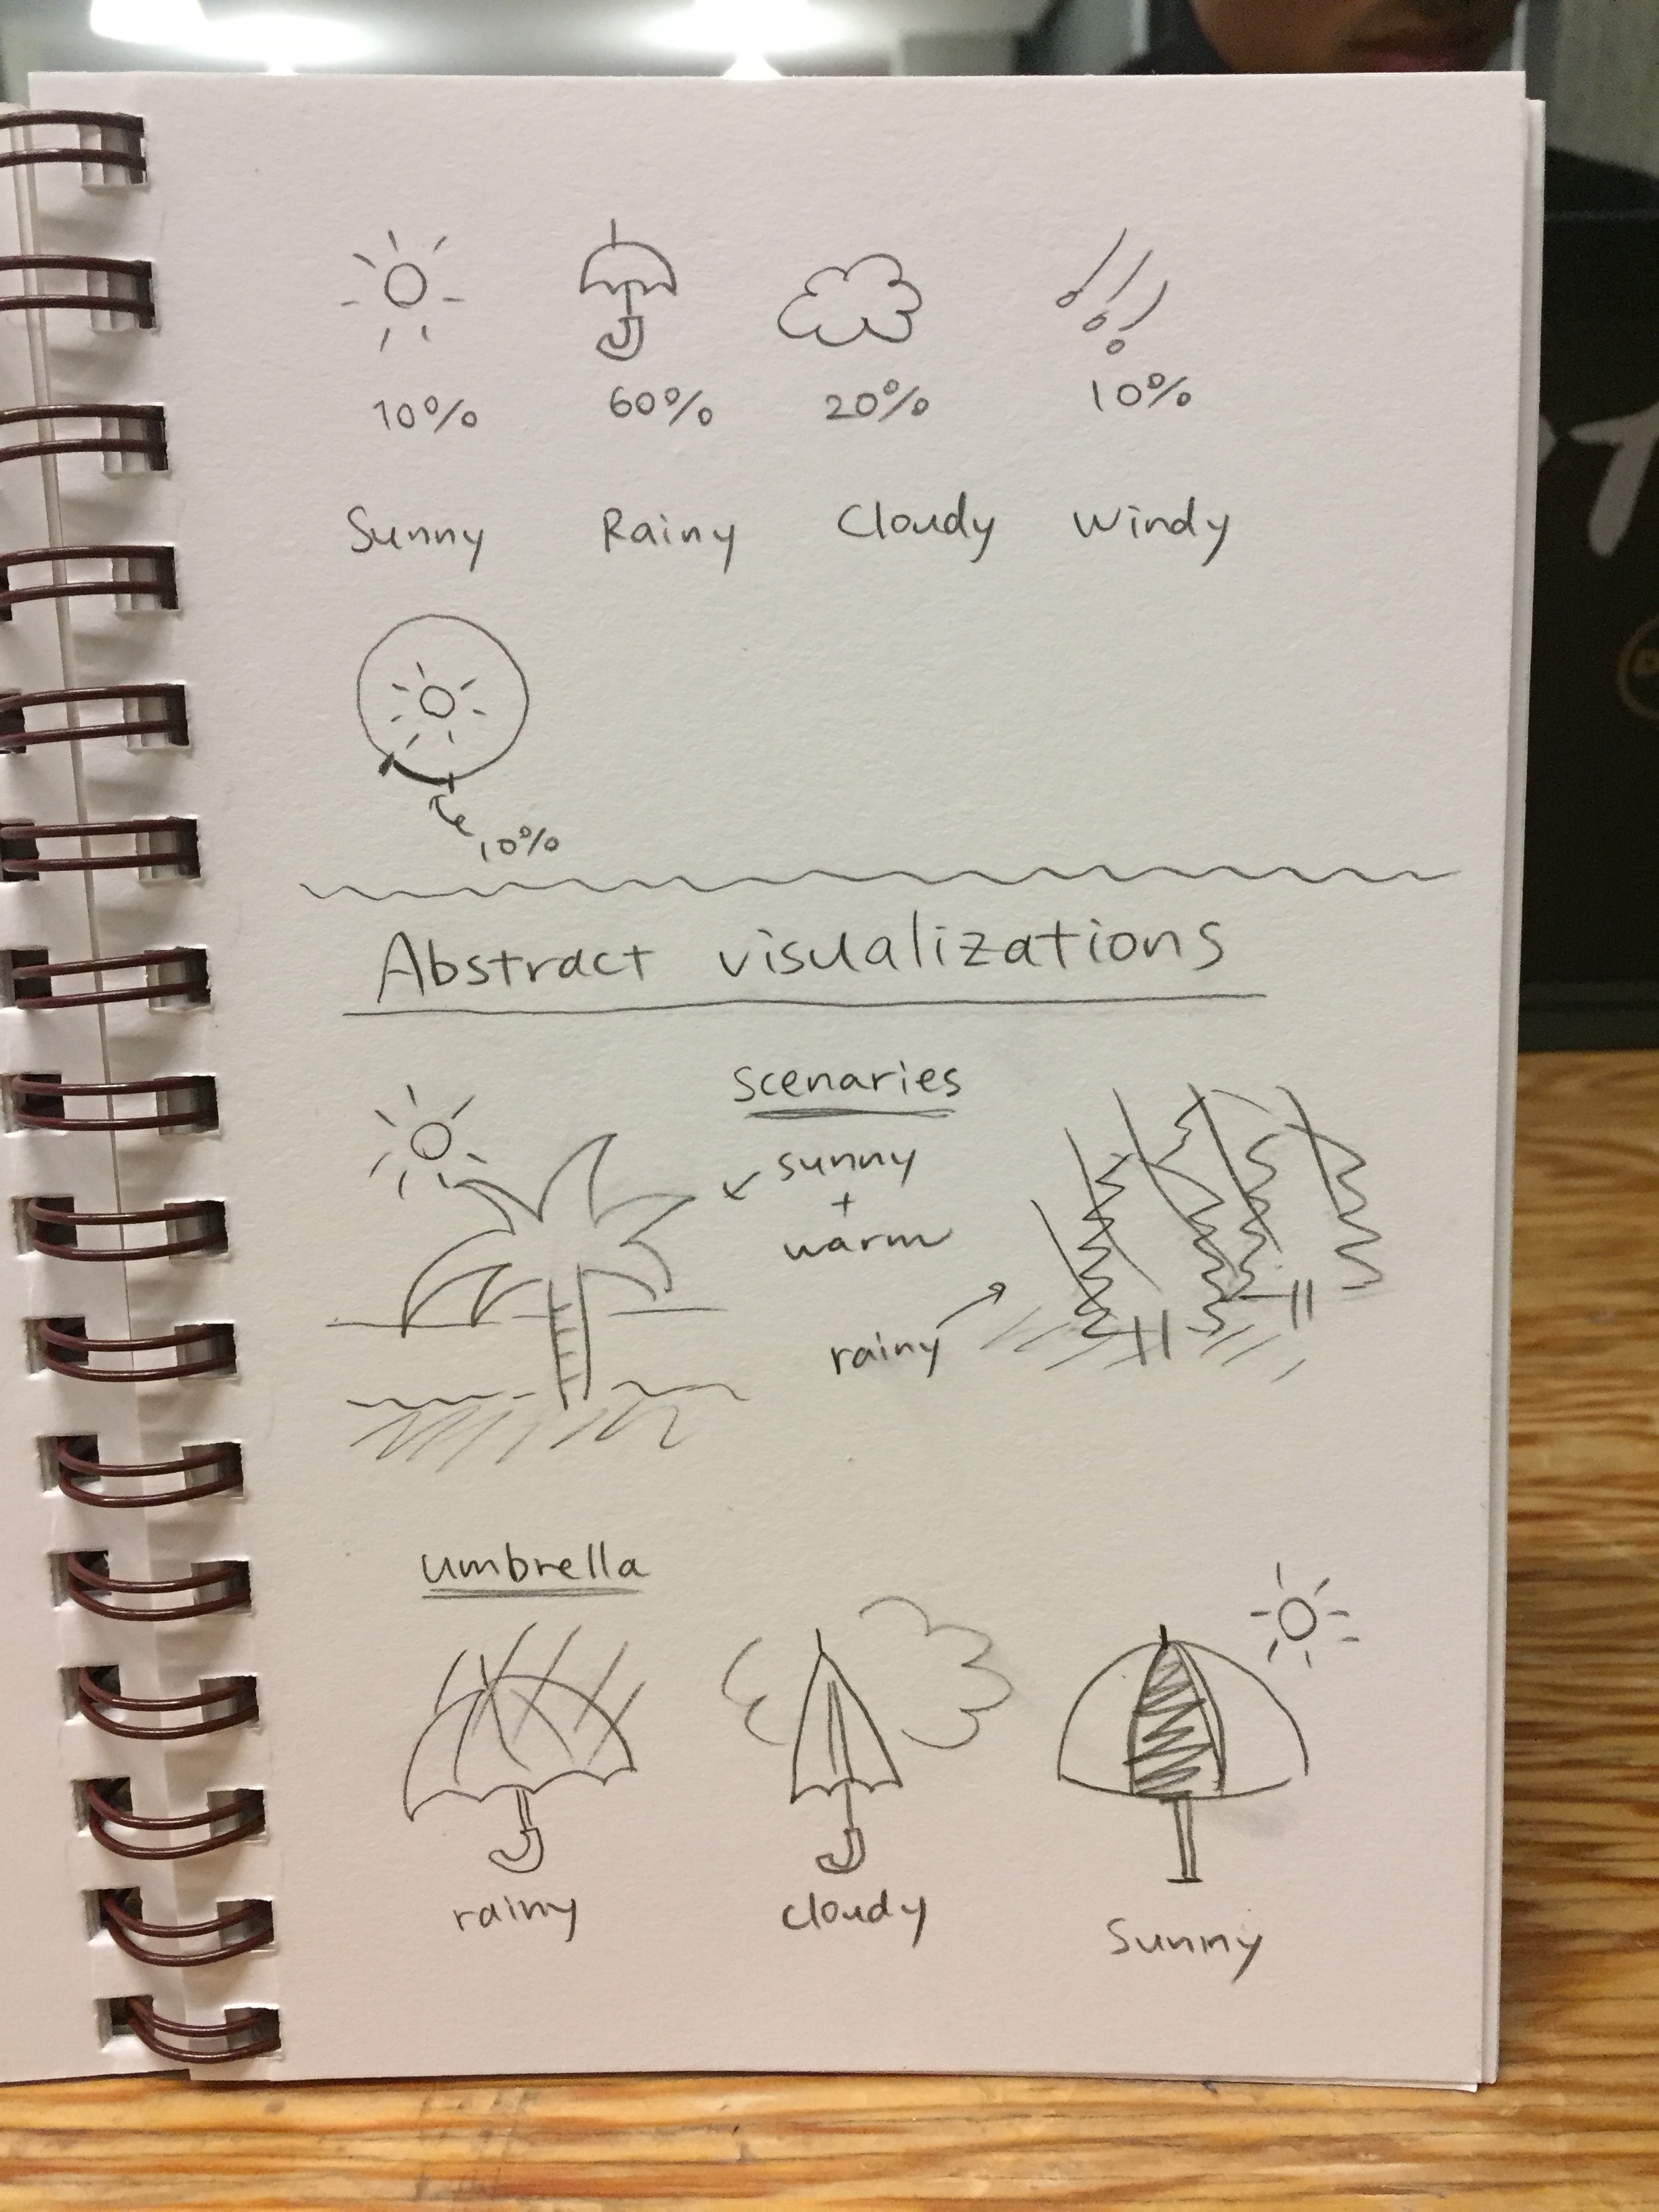 10% 60% 20% 10%
Sunny Rainy Cloudy Windy
10%
Abstract visualizations
scenaries
sunny
+
warm
rainy
umbrella
rainy cloudy Sunny